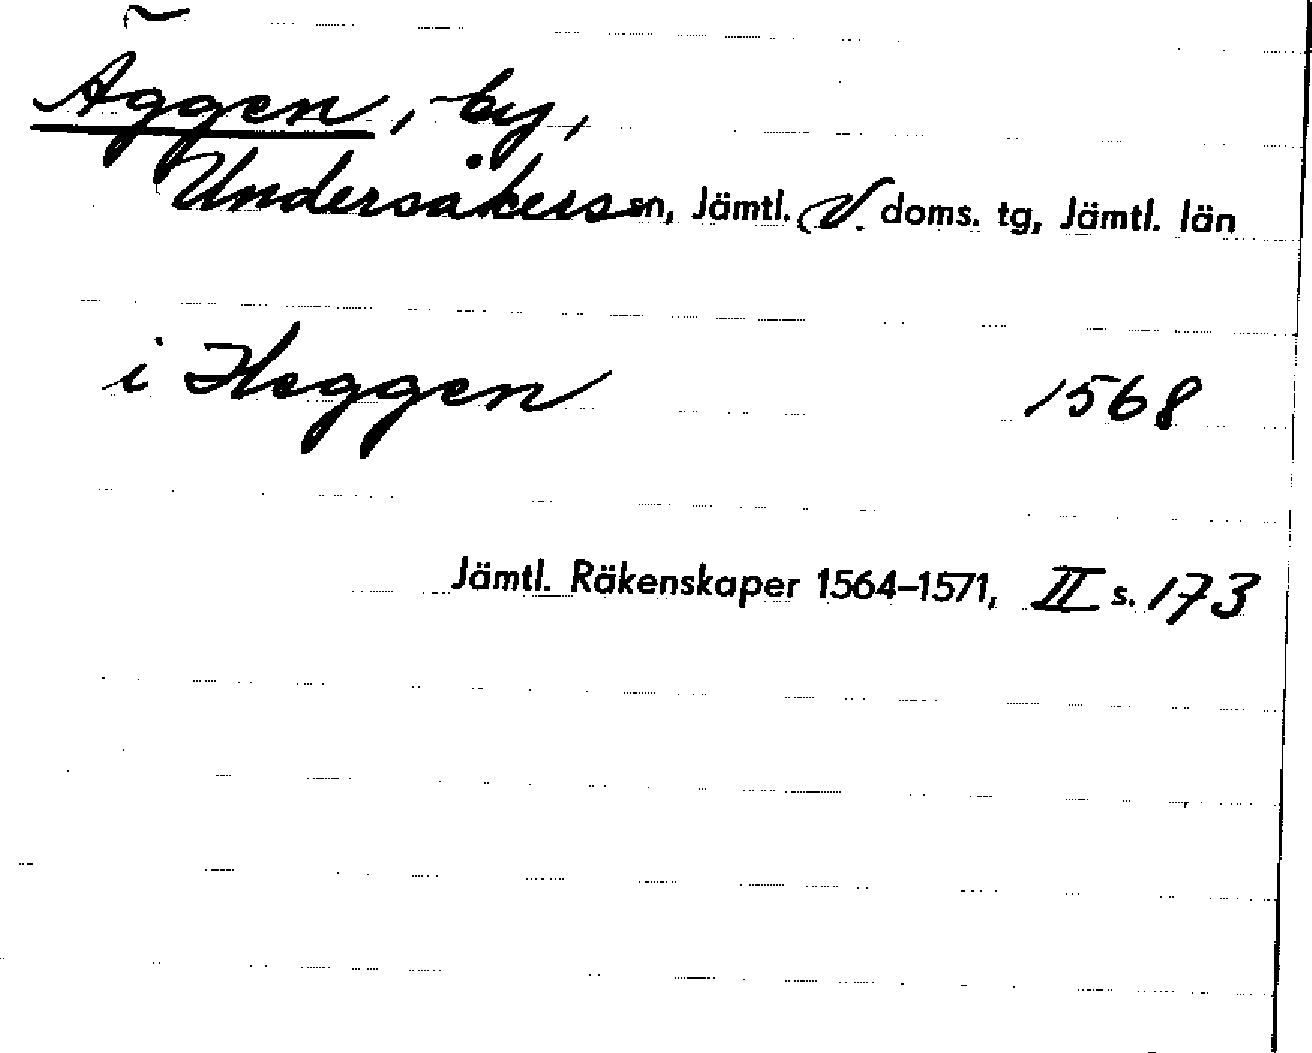 Äggen, by,
Undersåkers sn, Jämtl. V. doms. tg, Jämtl. län
i Heggen 1568
Jämtl. Räkenskaper 1564–1571, II s. 173